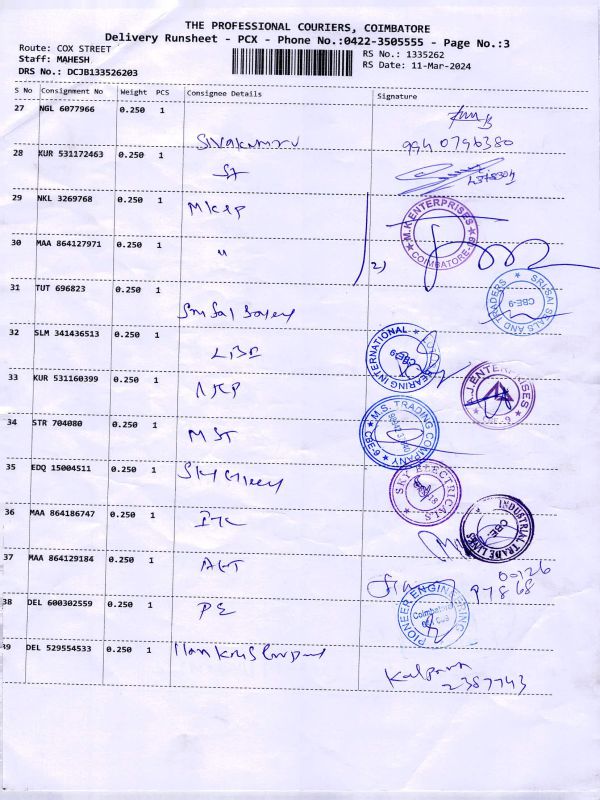 THE PROFESSIONAL COURIERS, COIMBATORE
Delivery Runsheet - PCX - Phone No.:0422-3505555 - Page No.:3
Route: COX STREET
RS No.: 1335262
Staff: MAHESH
RS Date: 11-Mar-2024
DRS No.: DCJB133526203
S No Consignment No Weight PCS Consignee Details Signature
27 NGL 6077966 0.250 1
Sivakumar 9940796380
28 KUR 531172463 0.250 1
29 NKL 3269768 0.250 1
M.K ENTERPRISES COIMBATORE-9
30 MAA 864127971 0.250 1 " 2)
31 TUT 696823 0.250 1
SRI SAI SEALS AND TRADERS CBE-9
32 SLM 341436513 0.250 1
BEARING INTERNATIONAL CBE-9
33 KUR 531160399 0.250 1
A.J. ENTERPRISES
34 STR 704080 0.250 1
MST M.S. TRADING COMPANY
35 EDQ 15004511 0.250 1
SKY ELECTRICALS
36 MAA 864186747 0.250 1
INDUSTRIAL TRADE LINKS CBE
37 MAA 864129184 0.250 1
38 DEL 600302559 0.250 1
PE PIONEER ENGINEERING Coimbatore
39 DEL 529554533 0.250 1
Kalpana
2387743